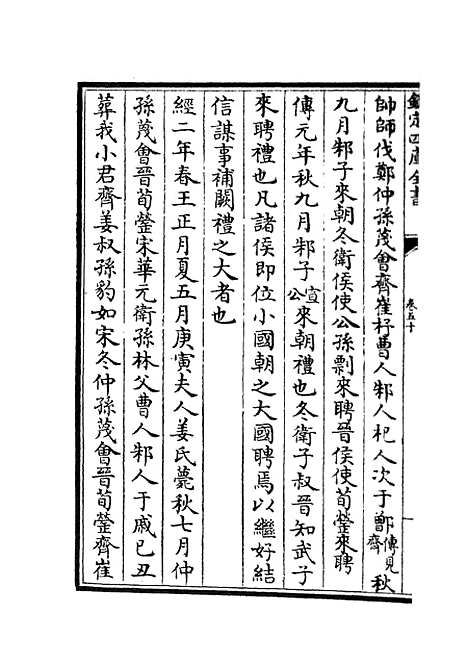 欽定四庫全書
卷五十
帥師伐鄭仲孫蔑會齊崔杼曹人邾人杞人次于鄫傳見齊秋
九月邾子來朝冬衛侯使公孫剽來聘晉侯使荀罃來聘
傳元年秋九月邾子宣公來朝禮也冬衛子叔晉知武子
來聘禮也凡諸侯即位小國朝之大國聘焉以繼好結
信謀事補闕禮之大者也
經二年春王正月夏五月庚寅夫人姜氏薨秋七月仲
孫蔑會晉荀罃宋華元衛孫林父曹人邾人于戚己丑
葬我小君齊姜叔孫豹如宋冬仲孫蔑會晉荀罃齊崔